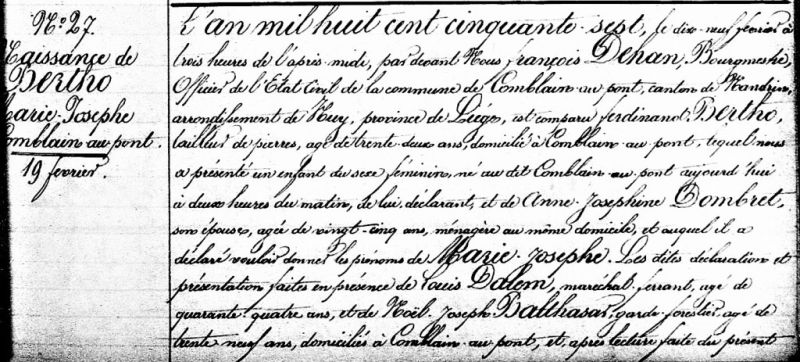 N.° 27.
Naissance de
Bertho
Marie Josephe
Comblain au pont.
19 fevrier.
L'an mil huit cent cinquante sept, le dix neuf février à
trois heures de l'après midi, par devant Nous françois Dehan, Bourgmestre,
Officier de l'Etat Civil de la commune de Comblain au pont, canton de Nandrin,
arrondissement de Huy, province de Liége, est comparu ferdinand Bertho,
tailleur de pierres, agé de trente deux ans, domicilié à Comblain au pont, lequel nous
a présenté un enfant du sexe féminin, né au dit Comblain au pont aujourd'hui
à deux heures du matin, de lui, déclarant, et de Anne Josephine Dombret,
son épouse, agée de vingt-cinq ans, ménagère au même domicile, et auquel il a
déclaré vouloir donner les prénoms de Marie Josephe. Les dites déclaration et
présentation faites en présence de Louis Dalem, maréchal ferrant, agé de
quarante quatre ans, et de Noël Joseph Balthasar, garde forestier, agé de
trente neuf ans, domiciliés à Comblain au pont, et, après lecture faite du présent